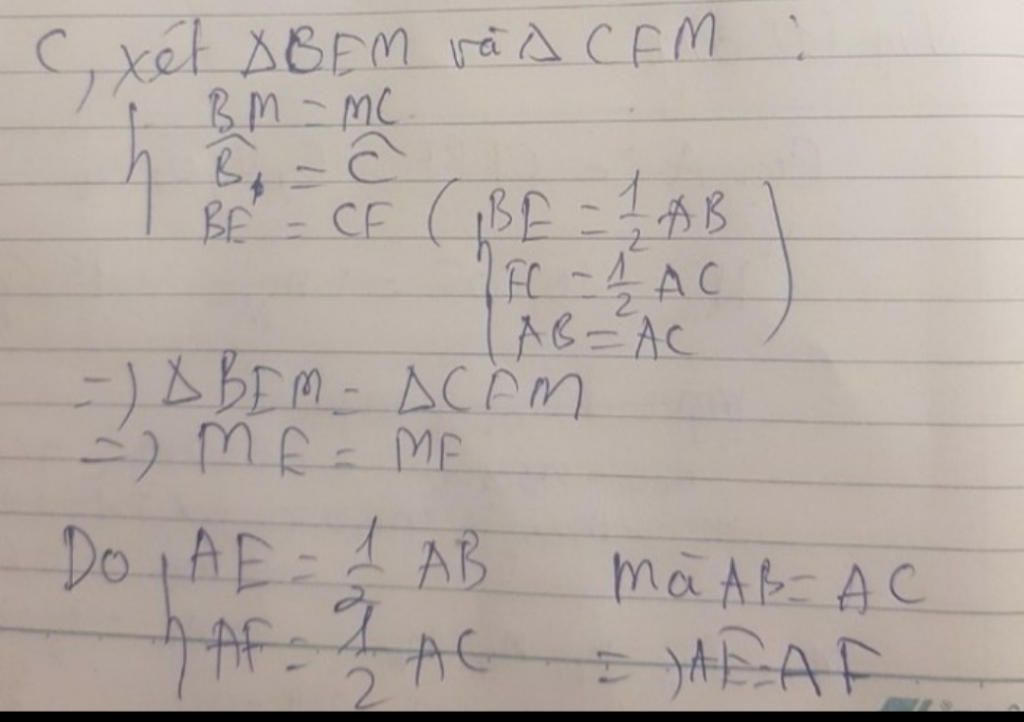 C, xét ΔBEM và Δ CFM :
BM = MC
B̂₁ = Ĉ
BE = CF ( BE = 1/2 AB
FC = 1/2 AC
AB = AC )
=) ΔBEM = ΔCFM
=) ME = MF
Do AE = 1/2 AB mà AB = AC
AF = 1/2 AC =) AE = AF